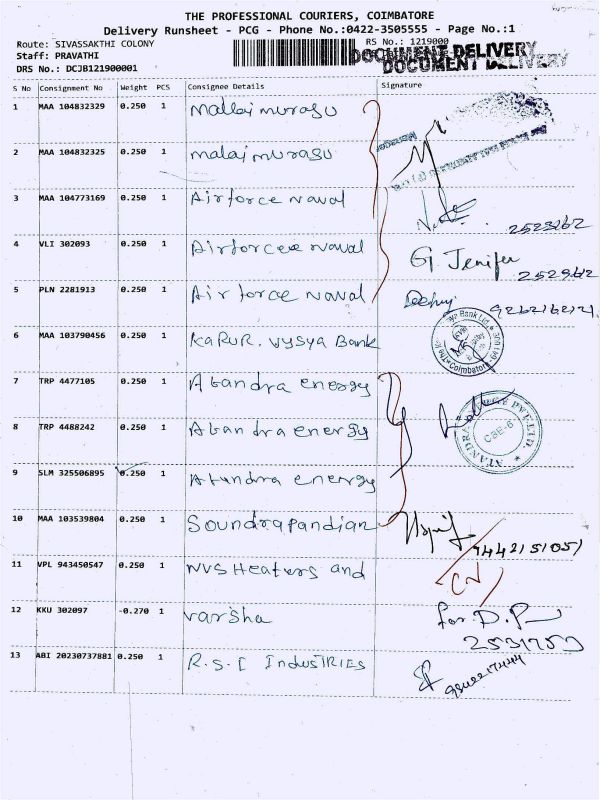 THE PROFESSIONAL COURIERS, COIMBATORE
Delivery Runsheet - PCG - Phone No.:0422-3505555 - Page No.:1
Route: SIVASSAKTHI COLONY RS No.: 1219000
Staff: PRAVATHI DOCUMENT DELIVERY
DRS No.: DCJB121900001 DOCUMENT DELIVERY
S No Consignment No Weight PCS Consignee Details Signature
1 MAA 104832329 0.250 1 mallai murasu
2 MAA 104832325 0.250 1 malai murasu
Manager
3 MAA 104773169 0.250 1 Airforce naval
2523262
4 VLI 302093 0.250 1 Airforcee naval G. Jenifer
5 PLN 2281913 0.250 1 Airforce naval
6 MAA 103790456 0.250 1 KARUR. vysya Bank
Coimbatore
7 TRP 4477105 0.250 1 Atandra energy
8 TRP 4488242 0.250 1 Atandra energy CBE-6
9 SLM 325506895 0.250 1 Atandra energy
10 MAA 103539804 0.250 1 Soundrapandian
9442151051
11 VPL 943450547 0.250 1 NVS Heaters and
12 KKU 302097 -0.270 1 varsha for D.P
2531753
13 ABI 20230737881 0.250 1 R.S.I IndusTRIES